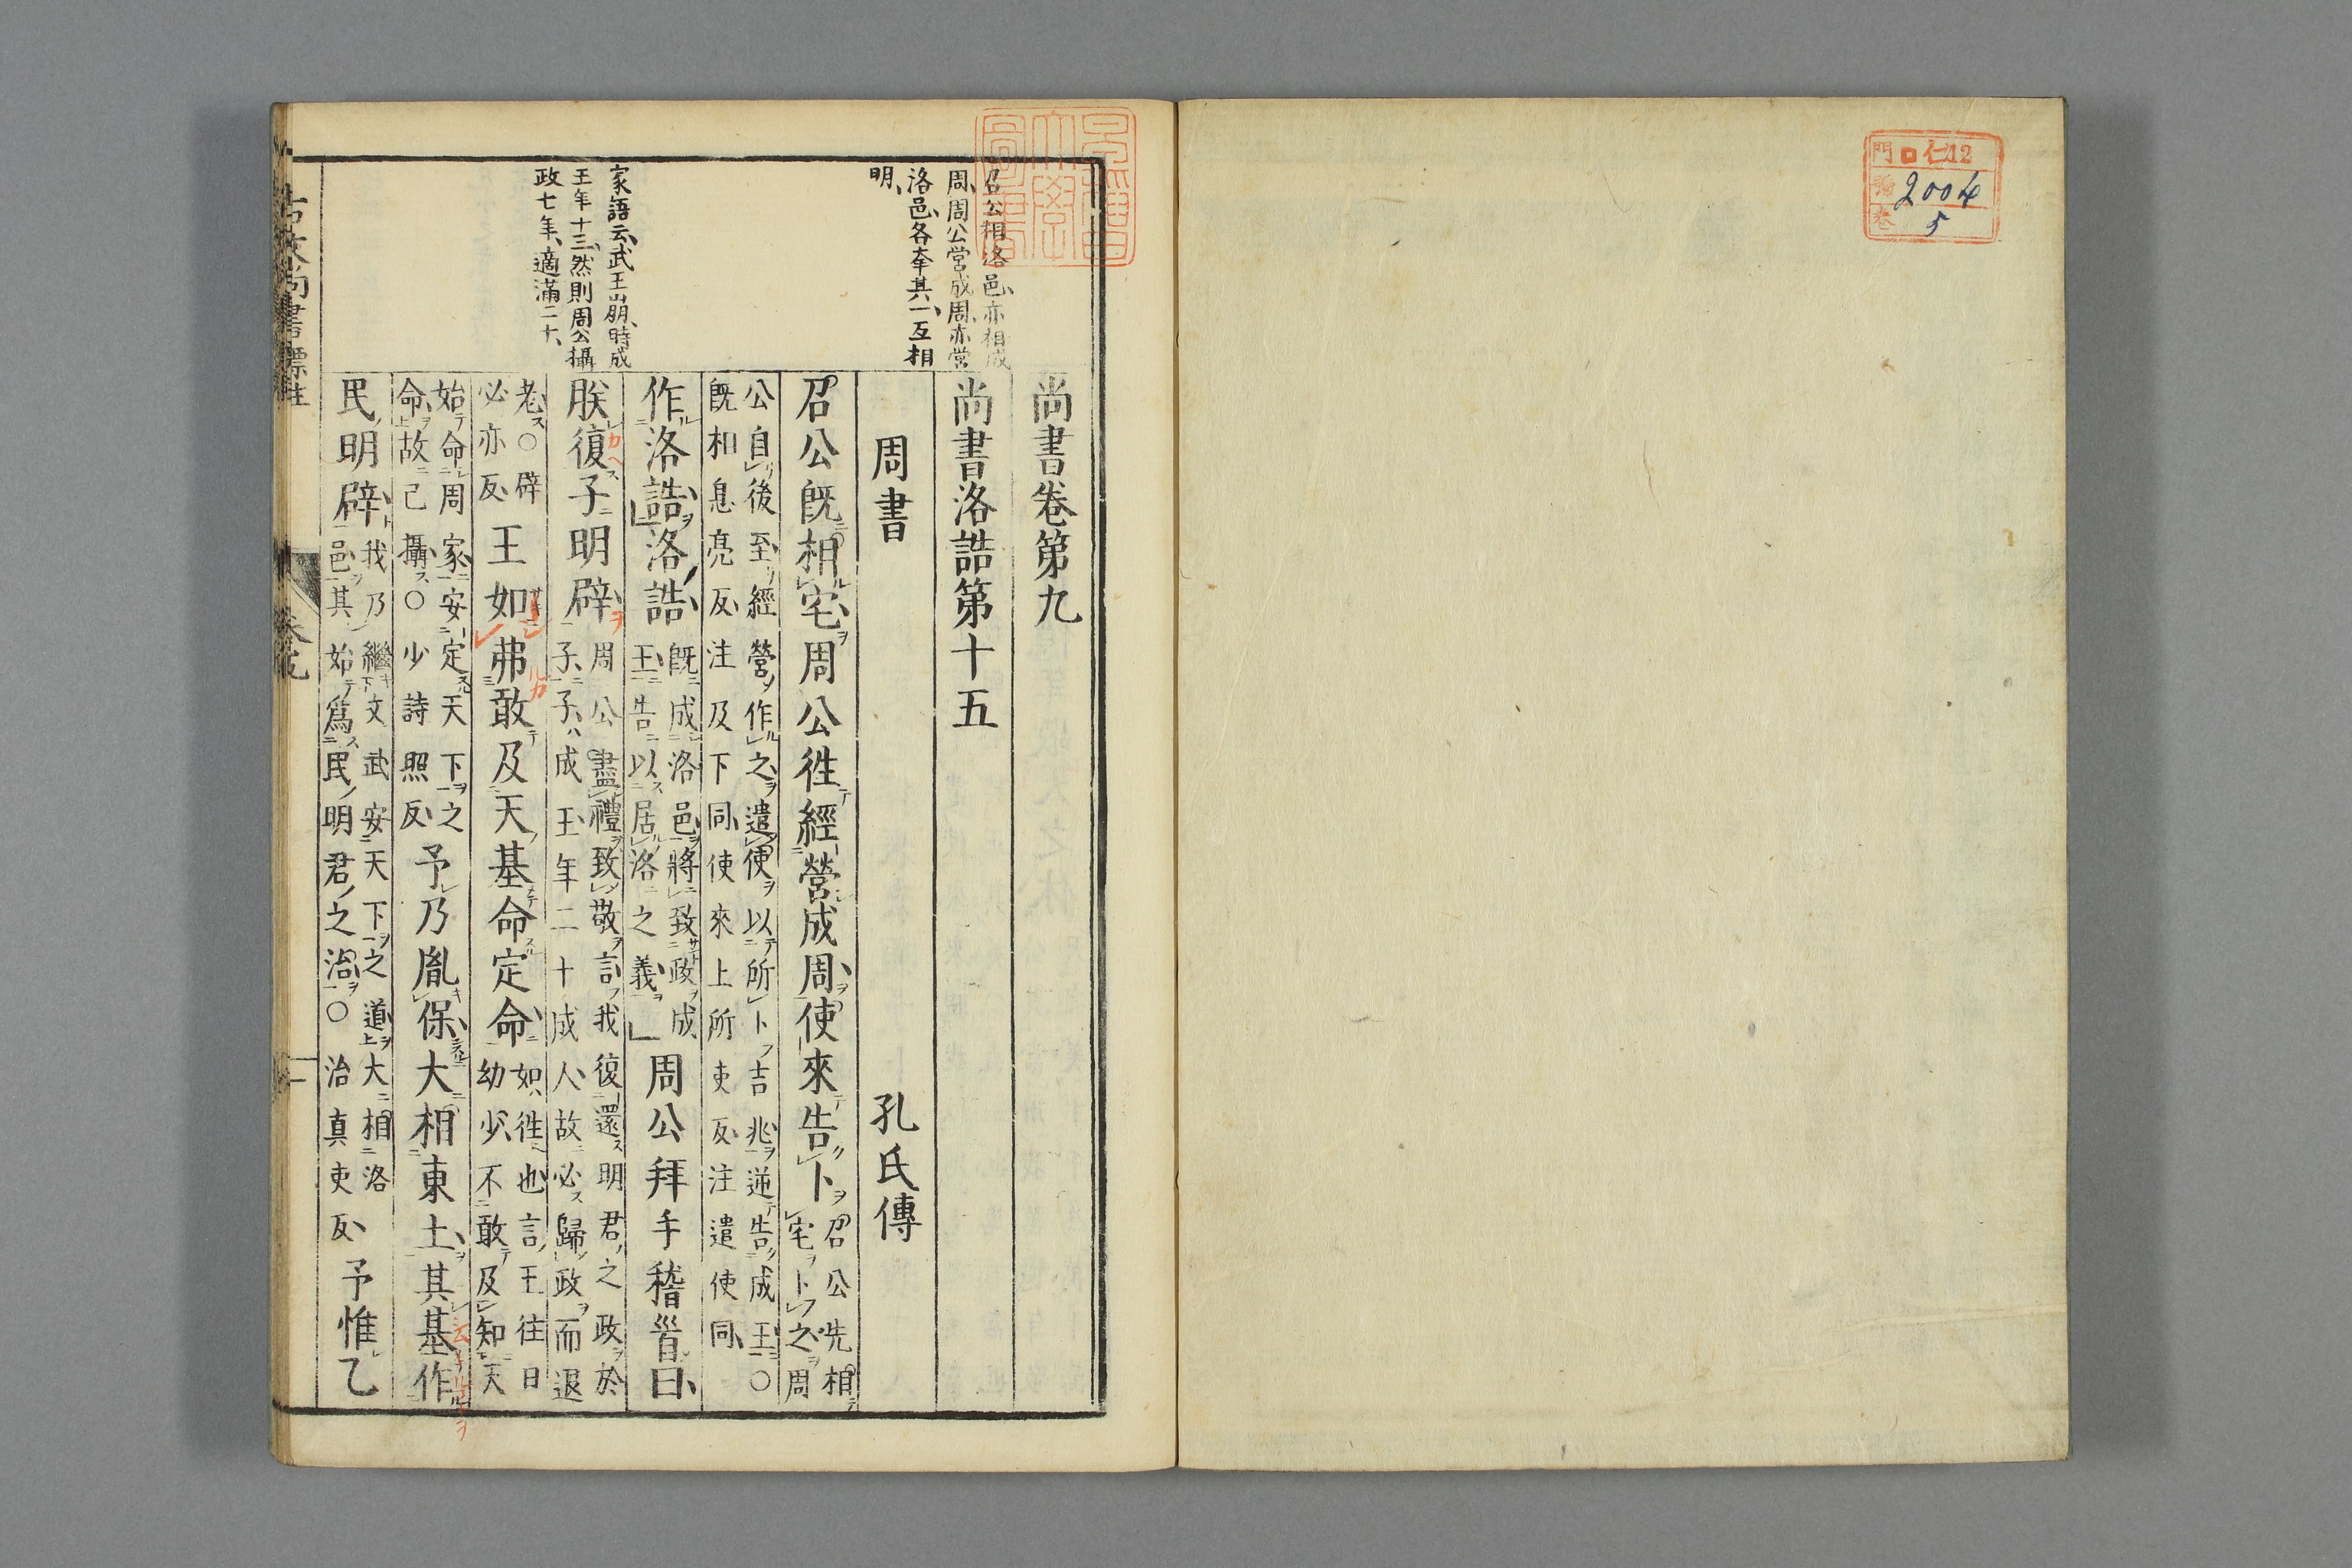 門 口仁12
號 2004
卷 5
召公相洛邑、亦相成
周、周公営成周、亦営
洛邑、各挙其一、互相
明、
家語云、武王崩、時成
王年十三、然則周公攝
政七年、適滿二十、
尚書卷第九
尚書洛誥第十五
周書 孔氏傳
召公旣相宅、周公徃經營成周、使來告卜
召公先相
宅卜之周
公自後至經營作之、遣使以所卜吉兆逆告成王、○
旣相息亮反、注及下同、使來上所吏反、注遣使同、
作洛誥、洛誥、
旣成洛邑、將致政成
王、告以居洛之義、
周公拜手稽首曰、
朕復子明辟、
周公盡禮致敬言我復還明君之政於
子、子成王年二十成人、故必歸政而退
老、○辟
必亦反、
王如弗敢及天基命定命、
如徃也、言王往日
幼少、不敢及知天
始命周家安定天下之
命、故己攝、○少詩照反、
予乃胤保、大相東土、其基作
民明辟、
我乃繼文武安天下之道、大相洛
邑、其始爲民明君之治、○治真吏反、
予惟乙
古文尚書標註 卷九 一